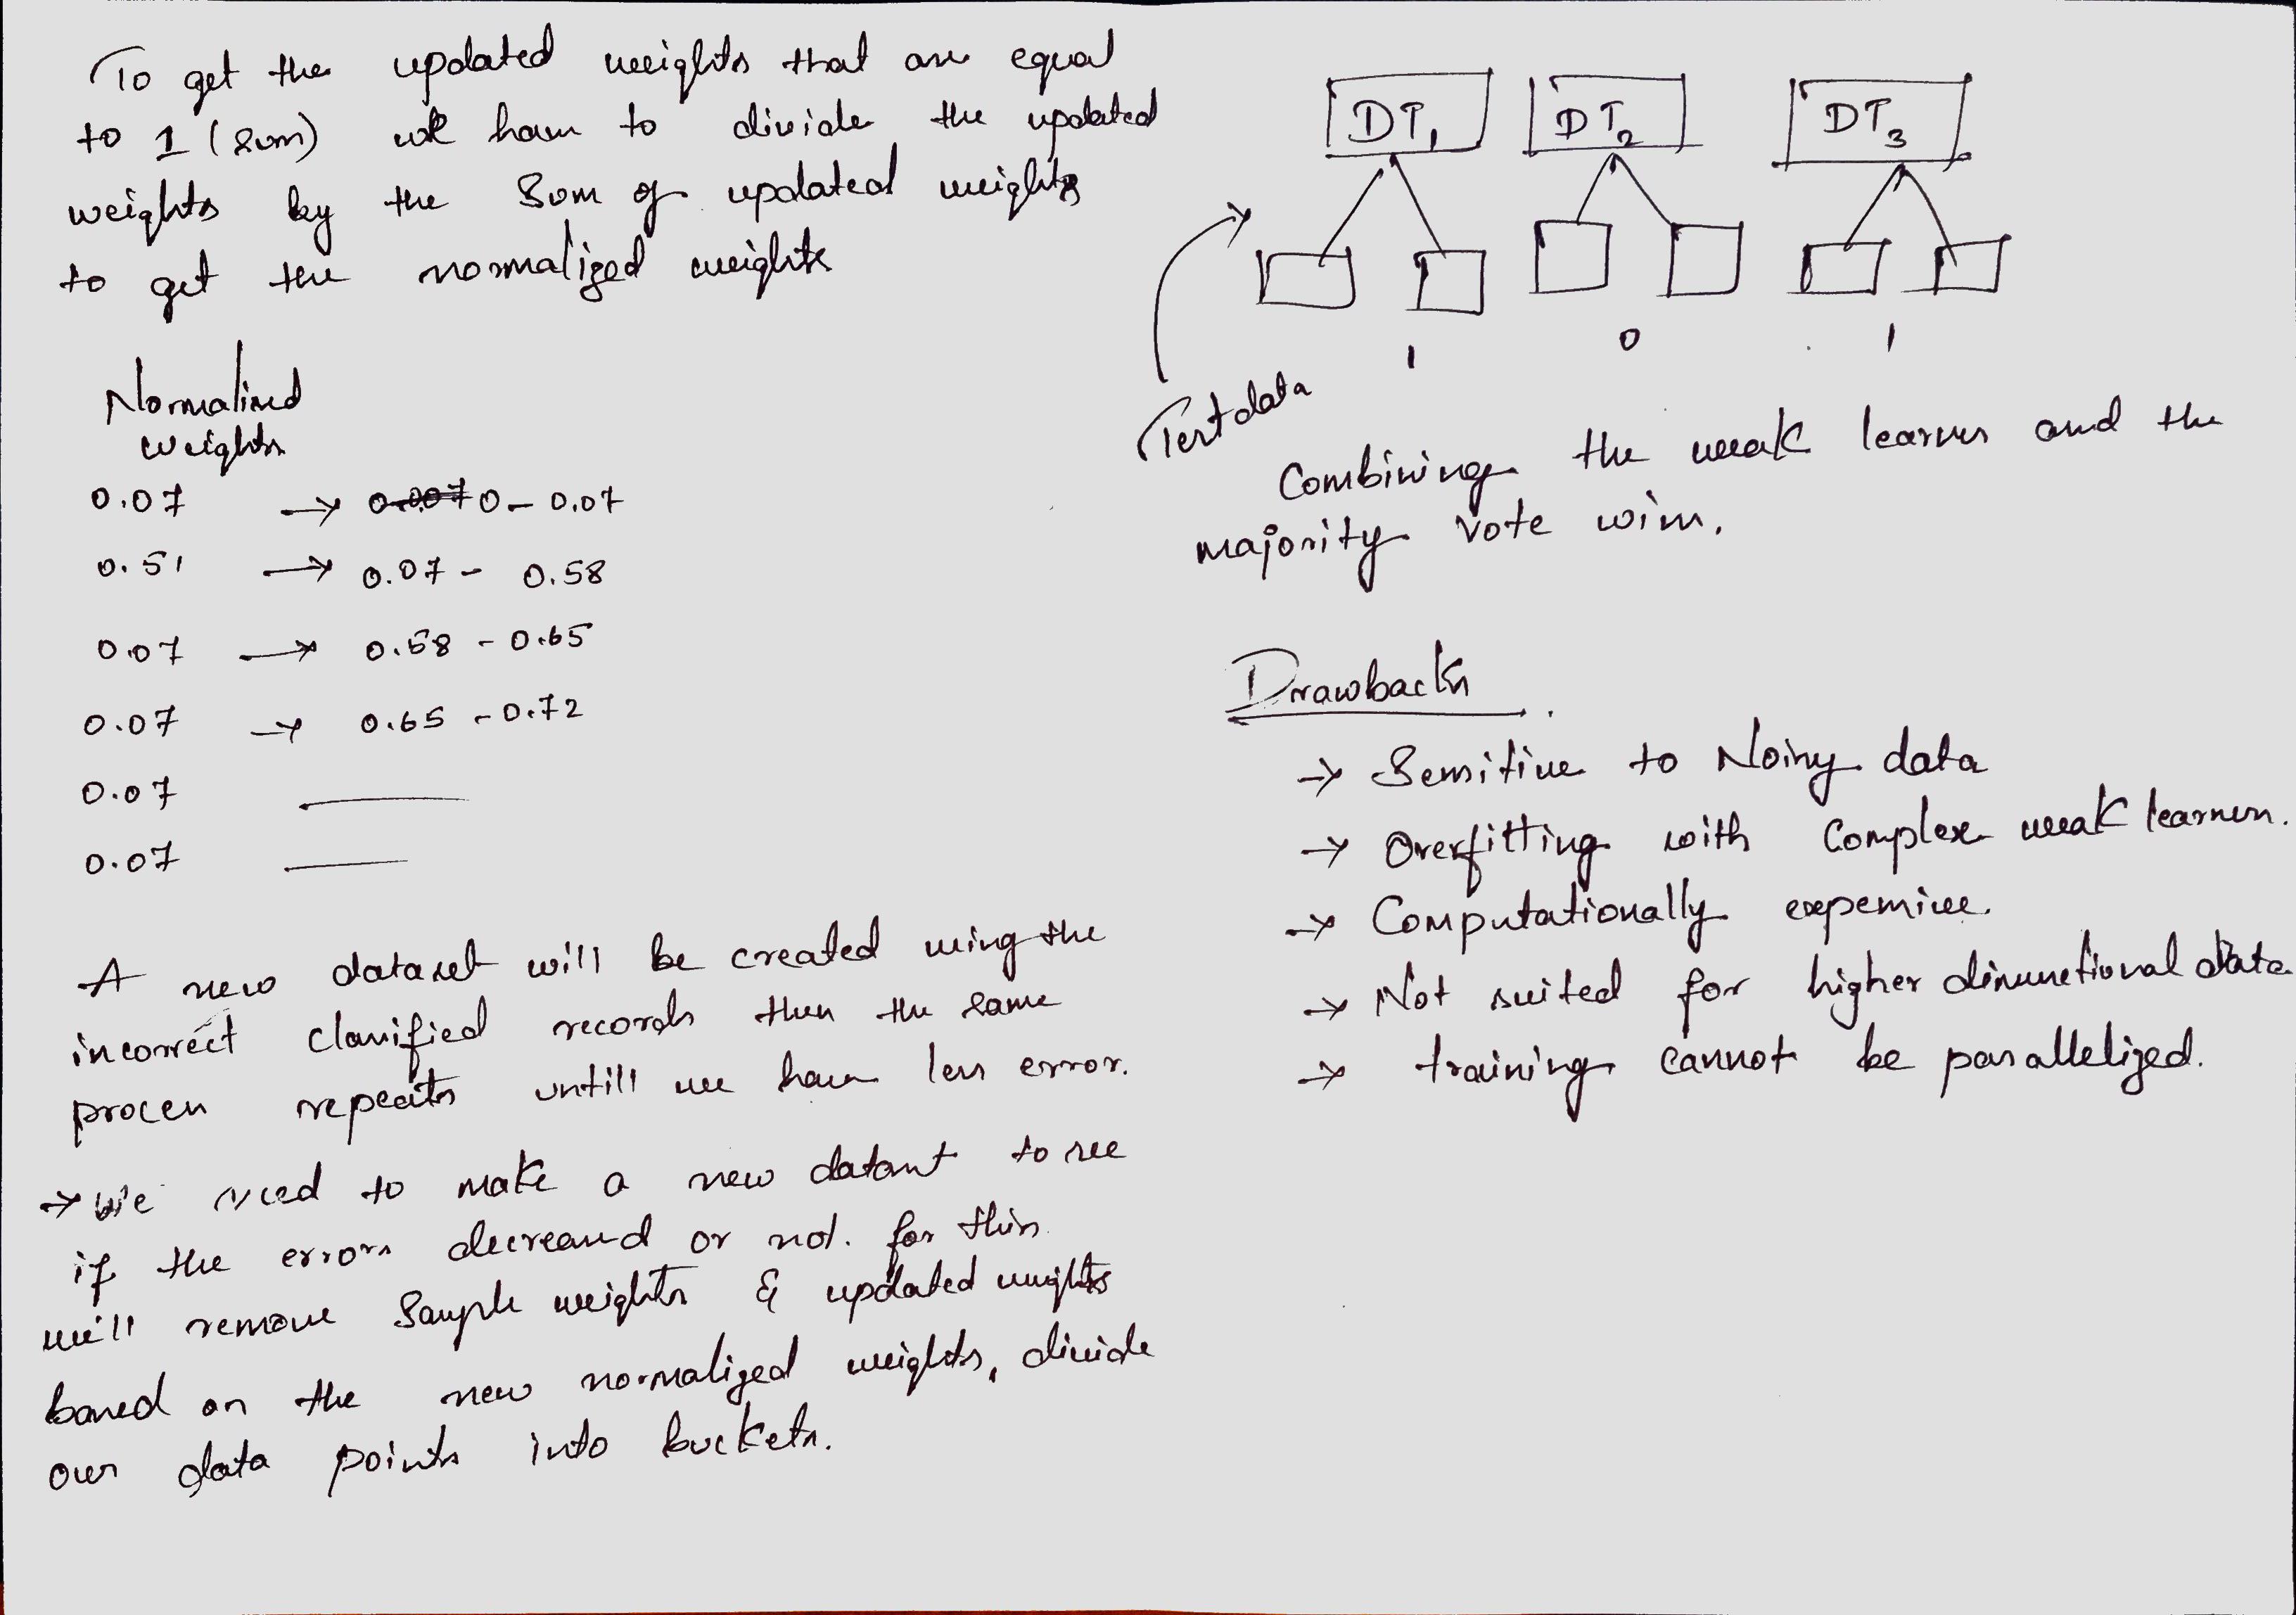 To get the updated weights that are equal
to 1 (sum) we have to divide the updated
weights by the sum of updated weights
to get the normalized weights
Normalized
weights
0.07 → 0-0.07
0.51 → 0.07 - 0.58
0.07 → 0.58 - 0.65
0.07 → 0.65 - 0.72
0.07
0.07
A new dataset will be created using the
incorrect classified records then the same
process repeats untill we have less error.
→ We need to make a new dataset to see
if the errors decreased or not. for this
we'll remove sample weights & updated weights
based on the new normalized weights, divide
our data points into buckets.
DT1 DT2 DT3
1 0 1
Test data
Combining the weak learners and the
majority vote wins.
Drawbacks
→ Sensitive to Noisy data
→ Overfitting with Complex weak learners.
→ Computationally expensive.
→ Not suited for higher dimensional data
→ training cannot be parallelized.